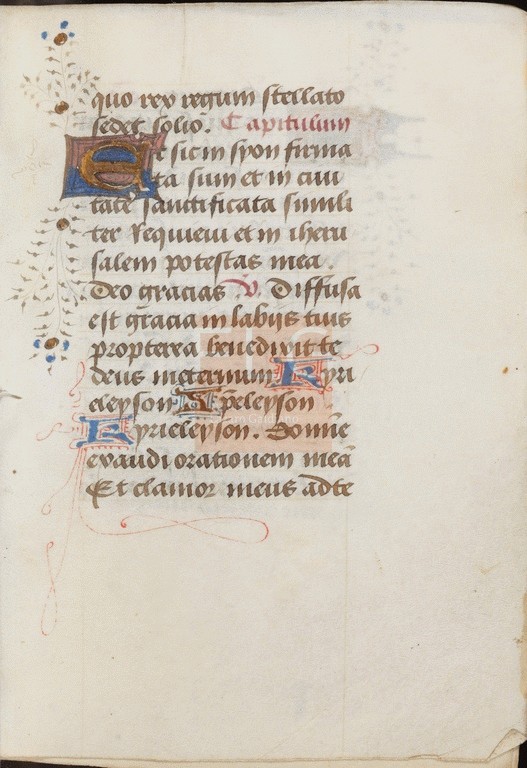 quo rex regum stellato
sedet solio. Capitulum
Et sic in syon firma
ta sum et in ciui
tate sanctificata simili
ter requieui et in iheru
salem potestas mea.
Deo gracias V. Diffusa
est gracia in labijs tuis
propterea benedixit te
deus ineternum Kyri
eleyson Xp̄eleyson
Kyrieleyson. Domīe
exaudi orationem meā
Et clamor meus ad te